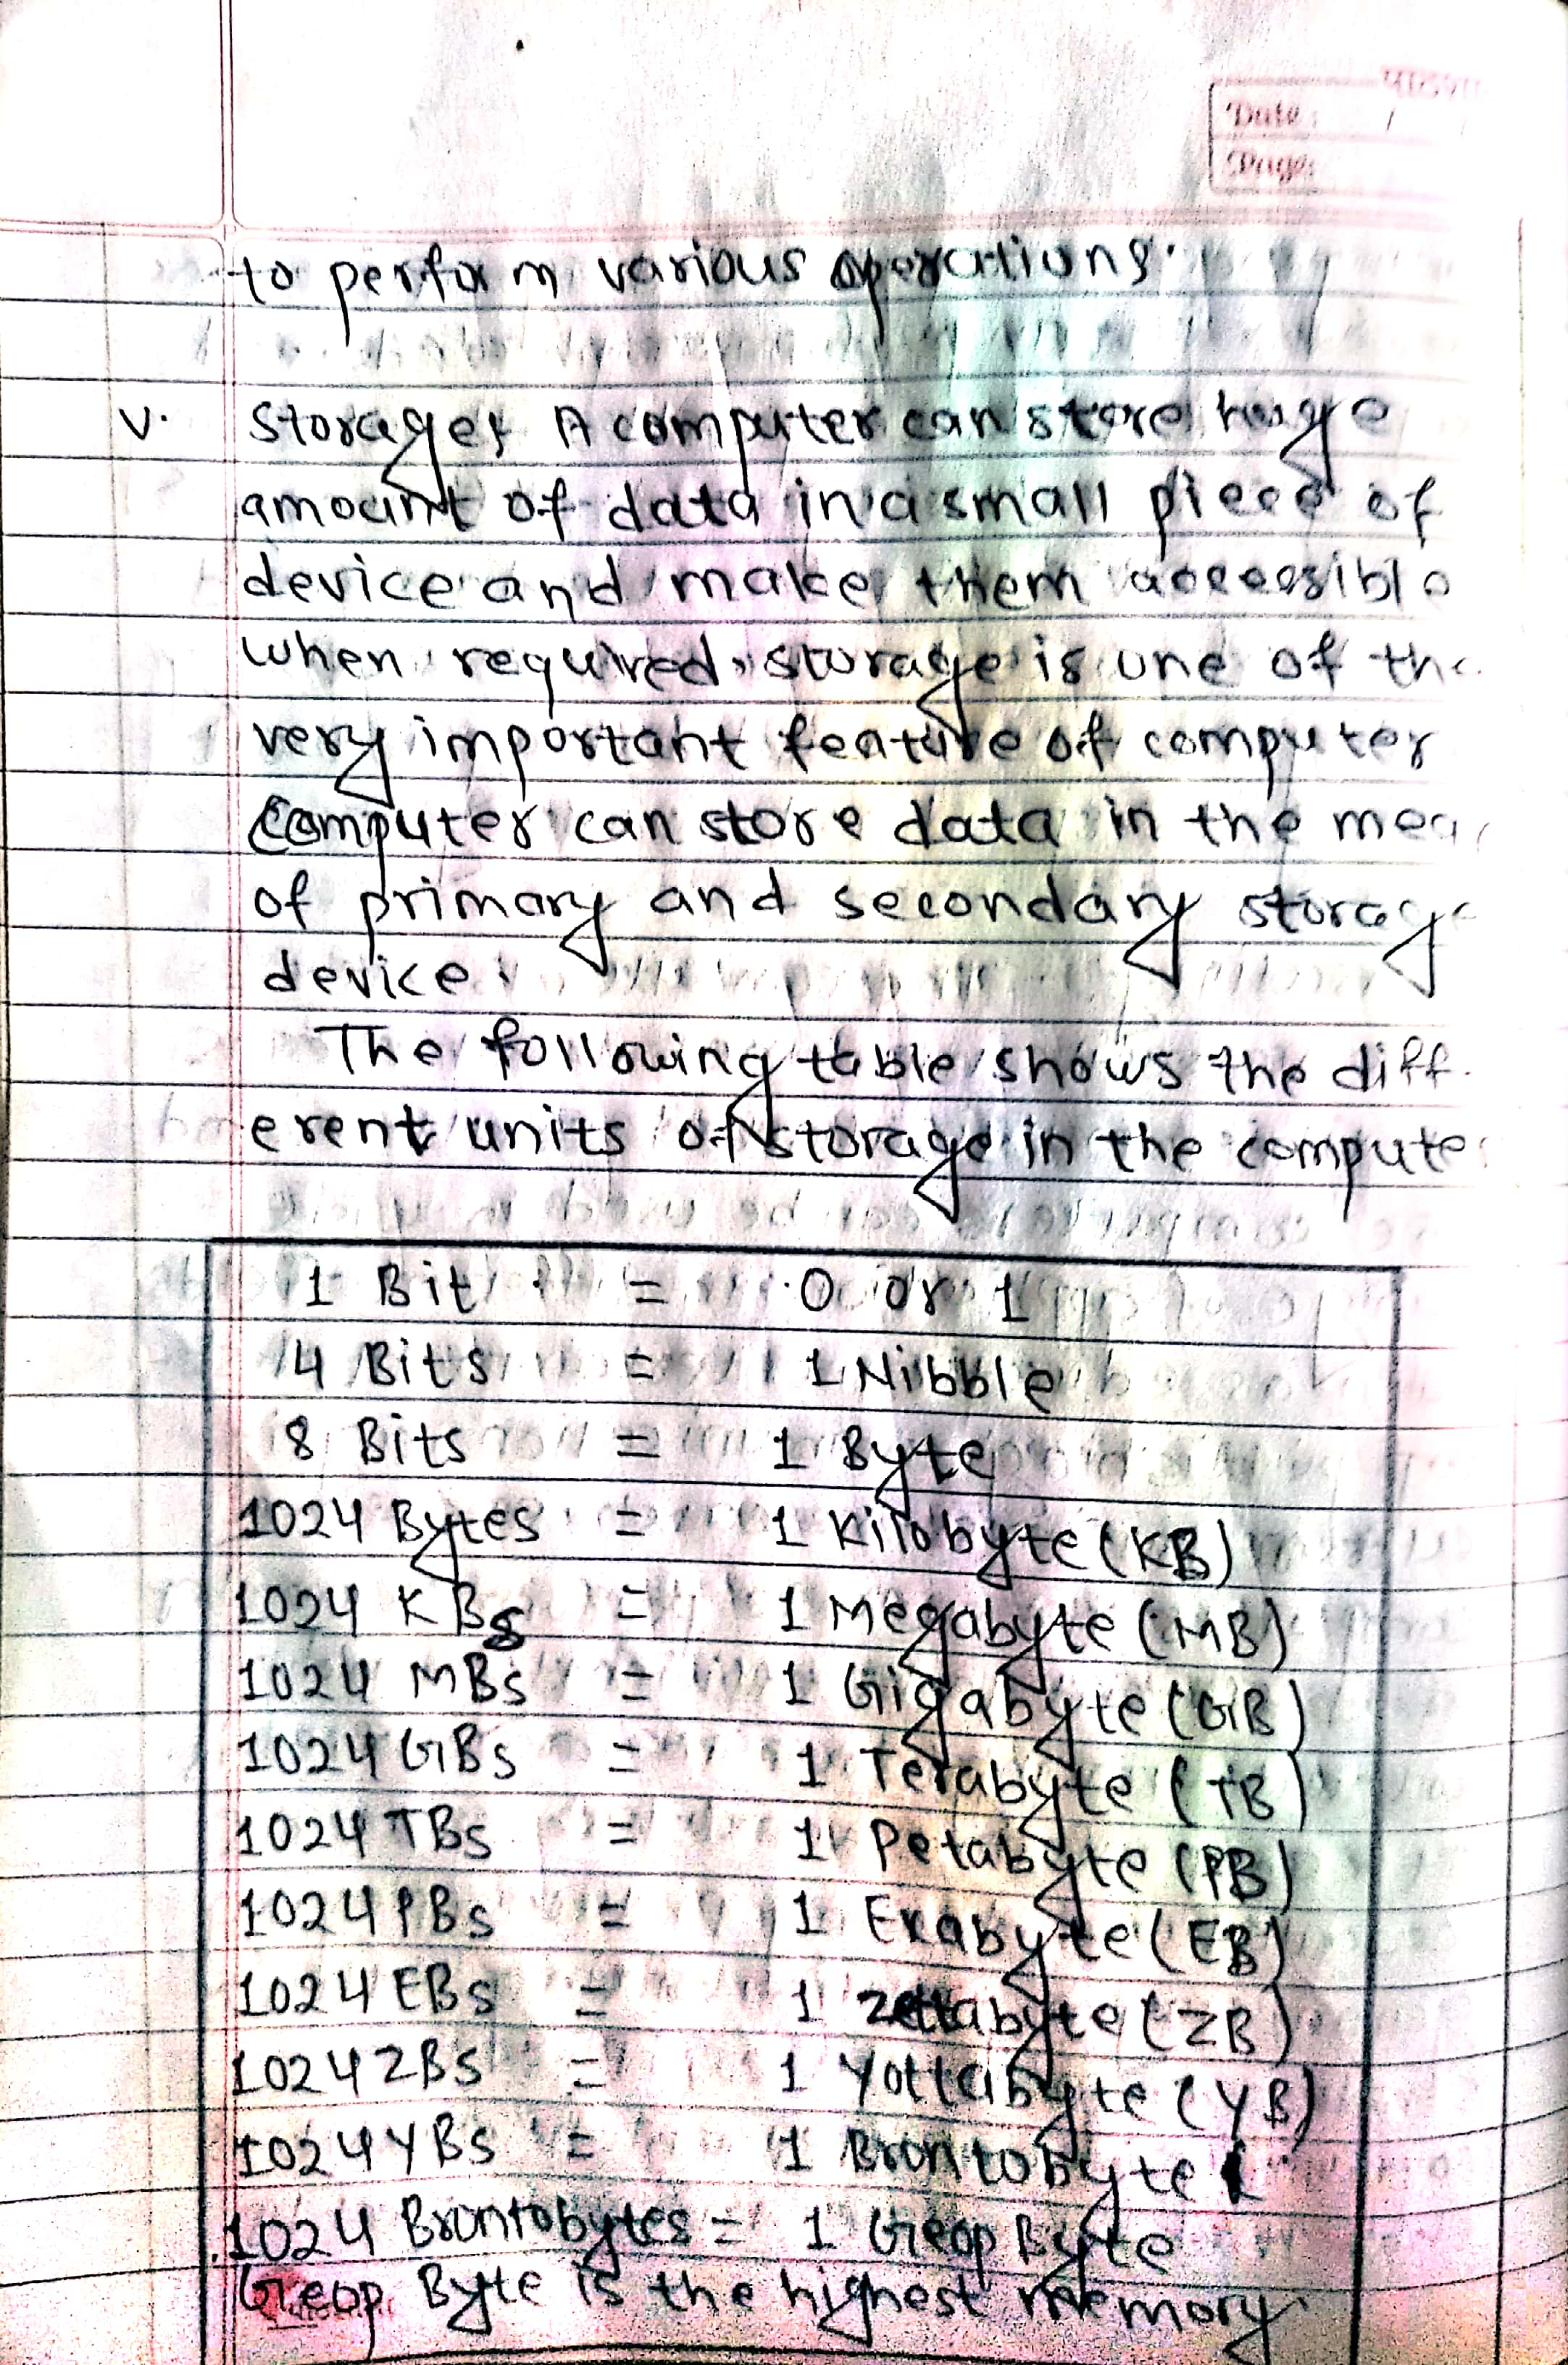 Date: / /
Page:
to perform various operations.
v. Storage: A computer can store huge
amount of data in a small piece of
device and make them accessible
when required. storage is one of the
very important feature of computer
Computer can store data in the
of primary and secondary storage
device.
The following table shows the diff-
erent units of storage in the compute
1 Bit = 0 or 1
4 Bits = 1 Nibble
8 Bits = 1 Byte
1024 Bytes = 1 Kilobyte (KB)
1024 KBs = 1 Megabyte (MB)
1024 MBs = 1 Gigabyte (GB)
1024 GBs = 1 Terabyte (TB)
1024 TBs = 1 Petabyte (PB)
1024 PBs = 1 Exabyte (EB)
1024 EBs = 1 Zettabyte (ZB)
1024 ZBs = 1 Yottabyte (YB)
1024 YBs = 1 Brontobyte
1024 Brontobytes = 1 Geop Byte
Geop Byte is the highest memory